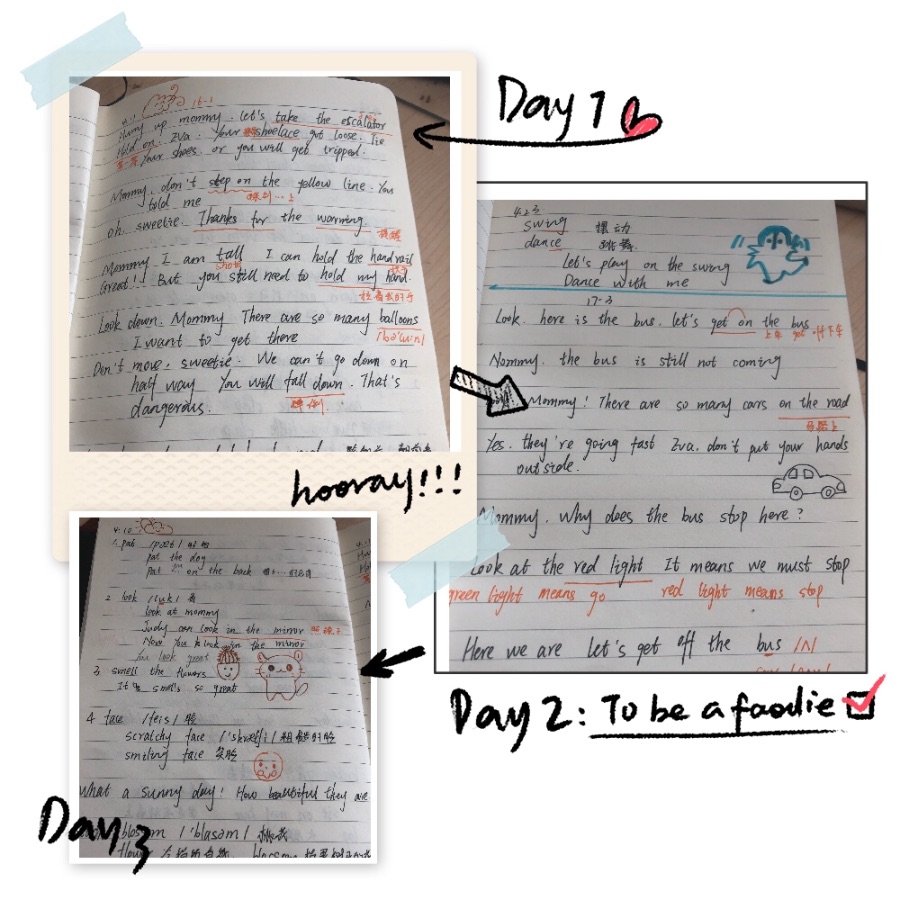 Day 1
4.1 16-1
Hurry up mommy. let's take the escalator
Hold on. Eva. Your shoelace got loose. Tie
Your shoes or you will get tripped.
Mommy. don't step on the yellow line. You
told me
oh sweetie. Thanks for the warning.
提醒
Mommy I am tall I can hold the handrail
short 扶手
Great! But you still need to hold my hand.
拉着我的手
Look down. Mommy There are so many balloons
I want to get there
Don't move, sweetie. We can't go down on
half way You will fall down. That's
摔倒
dangerous.
hooray!!!
4.23
swing 摆动
dance 跳舞
Let's play on the swing
Dance with me
17-3
Look. here is the bus. let's get on the bus
上车
Mommy. the bus is still not coming
Mommy! There are so many cars on the road
马路上
Yes. they're going fast Eva. don't put your hands
outside.
Mommy. Why does the bus stop here?
Look at the red light It means we must stop
green light means go red light means stop
Here we are let's get off the bus /ʌ/
Day 2: To be a foodie
4.12
1. pat
pat the dog
pat on the back
2 look /luk/ 看
look at mommy
Judy can look in the mirror 照镜子
Now you look in the mirror
You look great
3 smell the flowers
It smells so great
4 face /feis/ 脸
scratchy face 粗糙的脸
smiling face 笑脸
What a sunny day! How beautiful they are
blossom /'blasəm/
Day 3